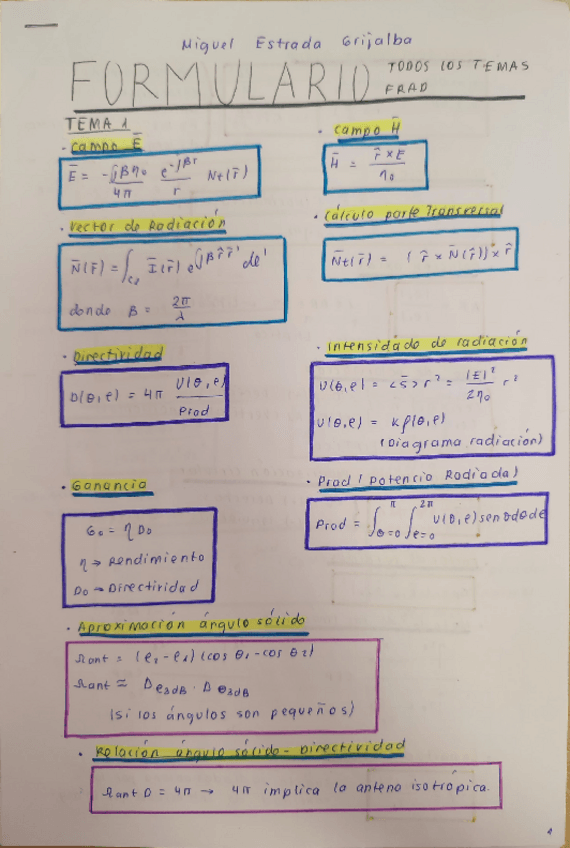 Miguel Estrada Grijalba
FORMULARIO TODOS LOS TEMAS
FRAD
TEMA 1
· Campo E̅
E̅ = -jβη₀/4π e^-jβr/r Nt(r̅)
· Campo H̅
H̅ = r̂ × E̅/η₀
· Vector de Radiación
N̅(r̅) = ∫ I̅(r̅) e^jβ r̂ r̅' dl'
donde β = 2π/λ
· Cálculo parte Transversal
N̅t(r̅) = (r̂ × N̅(r̂)) × r̂
· Directividad
D(θ,φ) = 4π U(θ,φ)/Prad
· Intensidad de radiación
U(θ,φ) = <S̅> r² = |E|²/2η₀ r²
U(θ,φ) = K ρ(θ,φ)
(Diagrama radiación)
· Ganancia
G₀ = η D₀
η → Rendimiento
D₀ → Directividad
· Prad (Potencia Radiada)
Prad = ∫θ=0^π ∫φ=0^2π U(θ,φ) senθdθdφ
· Aproximación ángulo sólido
Ωant = (φ₂ - φ₁) (cos θ₁ - cos θ₂)
Ωant ≈ Δφ3dB · Δθ3dB
(si los ángulos son pequeños)
· Relación ángulo sólido - Directividad
Ωant D = 4π → 4π implica la antena isotrópica.
1